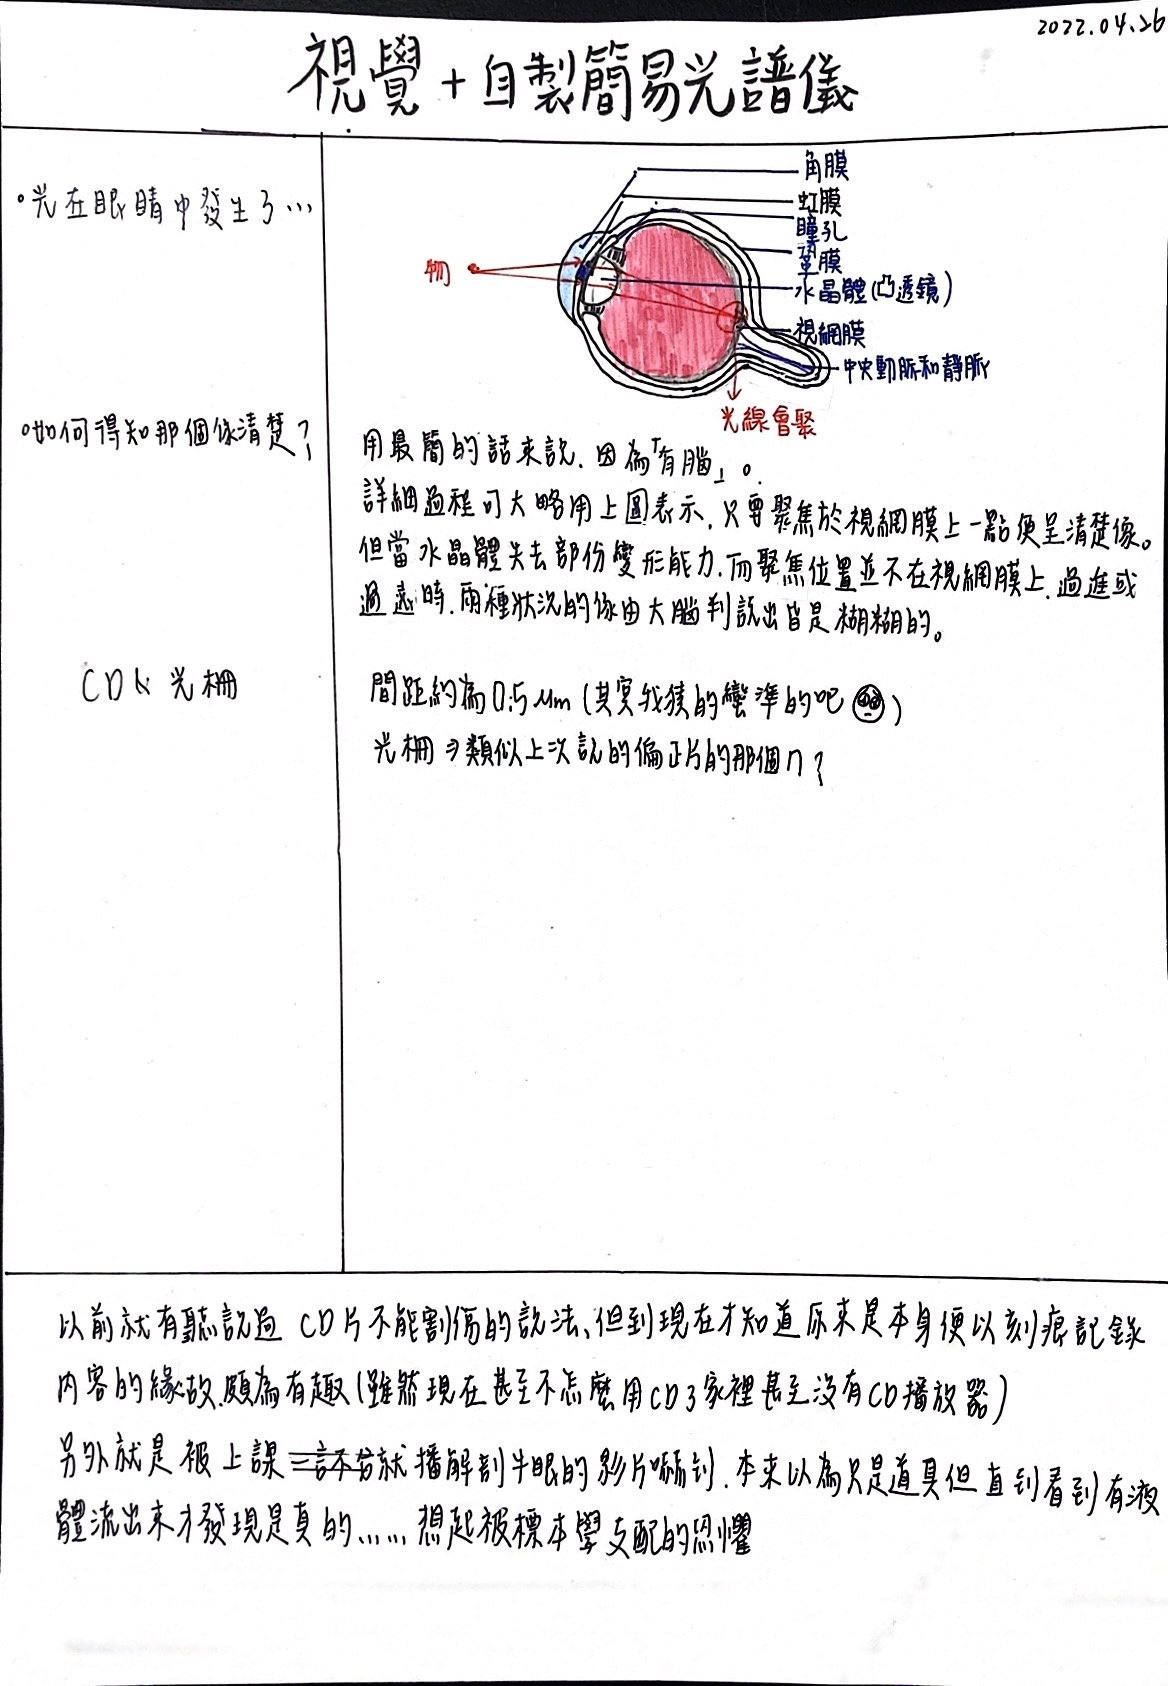 2022.04.26
視覺+自製簡易光譜儀
•光在眼睛中發生了…
角膜
虹膜
瞳孔
鞏膜
水晶體(凸透鏡)
視網膜
中央動脈和靜脈
物
光線會聚
•如何得知那個像清楚?
用最簡的話來說,因為「有腦」。
詳細過程可大略用上圖表示,只要聚焦於視網膜上一點便呈清楚像。
但當水晶體失去部份變形能力,而聚焦位置並不在視網膜上,過進或
過遠時,兩種狀況的像由大腦判說出皆是糊糊的。
CD & 光柵
間距約為0.5μm(其實我猜的蠻準的吧)
光柵⇒類似上次說的偏正片的那個ㄇ?
以前就有聽說過 CD片不能割傷的說法、但到現在才知道原來是本身便以刻痕記錄
內容的緣故,頗為有趣(雖然現在甚至不怎麼用CD了家裡甚至沒有CD播放器)
另外就是被上課就播解剖牛眼的影片嚇到,本來以為只是道具但直到看到有液
體流出來才發現是真的……想起被標本學支配的恐懼